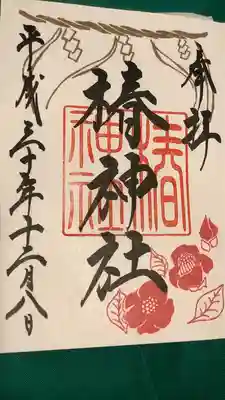 奉拝
椿神社
平成三十年十二月八日